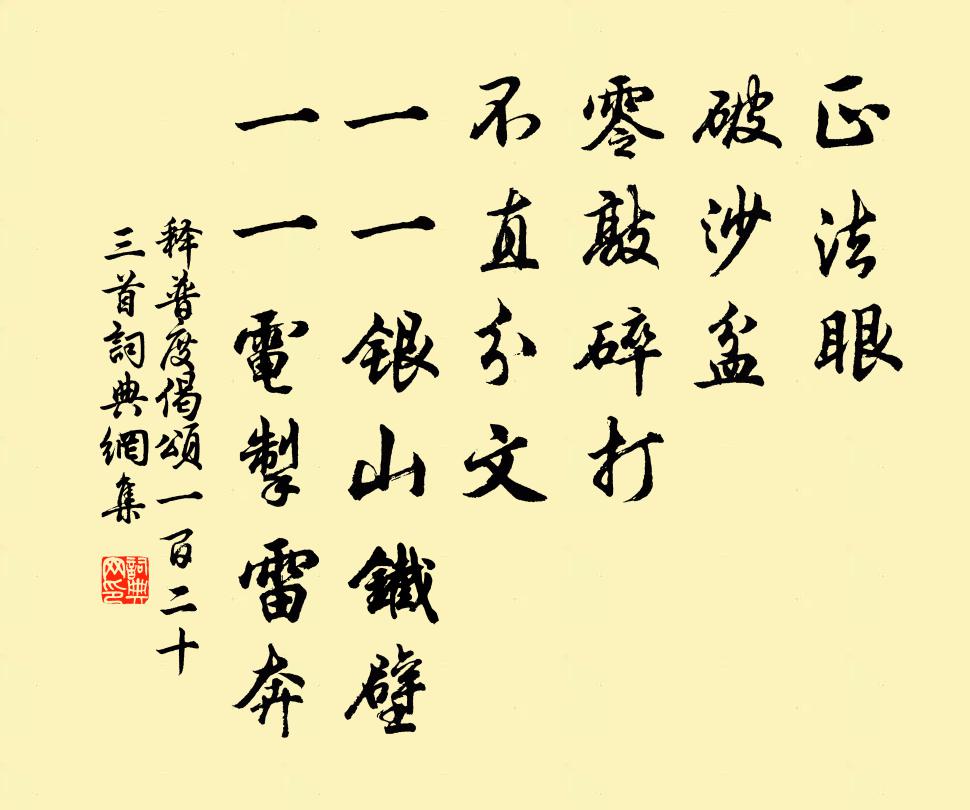 正法眼
破沙盆
零敲碎打
不直分文
一一銀山鐵壁
一一電掣雷奔
释普度偈頌一百二十
三首詞典網集
詞典
网印